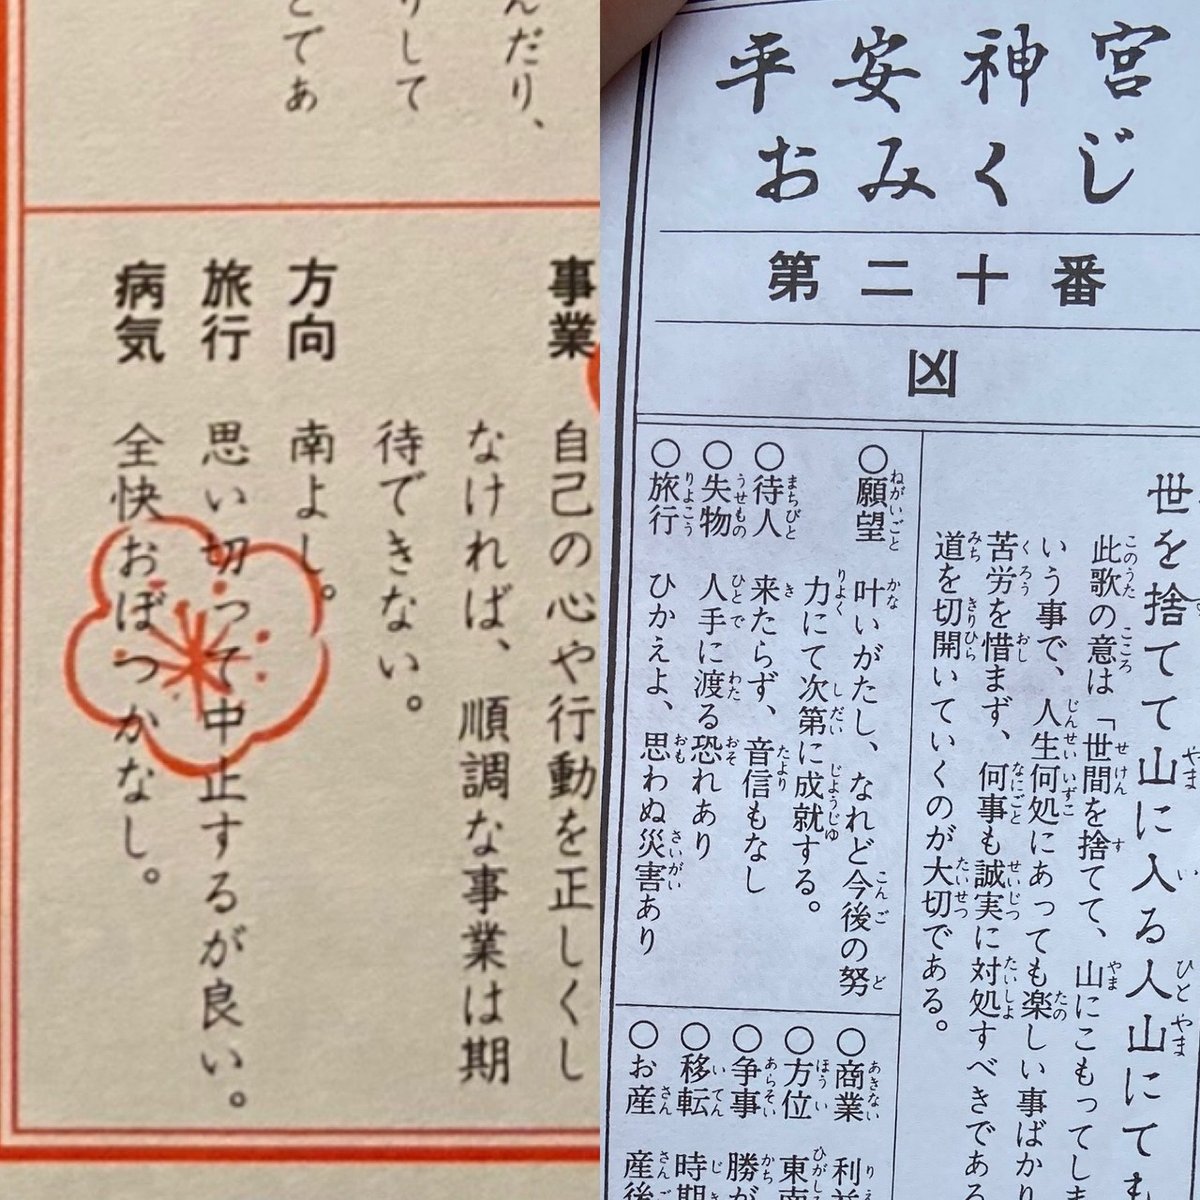 んだり、
りして
とであ
事業 自己の心や行動を正しくし
なければ、順調な事業は期
待できない。
方向 南よし。
旅行 思い切って中止するが良い。
病気 全快おぼつかなし。
平安神宮
おみくじ
第二十番
凶
世を捨てて山に入る人山にても
此歌の意は「世間を捨てて、山にこもってしま
いう事で、人生何処にあっても楽しい事ばかり
苦労を惜まず、何事も誠実に対処すべきである
道を切開いていくのが大切である。
○願望 叶いがたし、なれど今後の努
力にて次第に成就する。
○待人 来たらず、音信もなし
○失物 人手に渡る恐れあり
○旅行 ひかえよ、思わぬ災害あり
○商業 利
○方位 東南
○争事 勝が
○移転 時期
○お産 産後